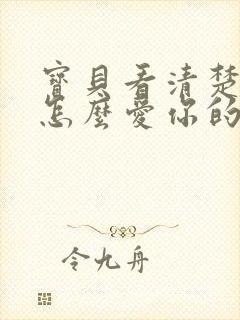 寶貝看清楚
怎麼愛你的
令九舟